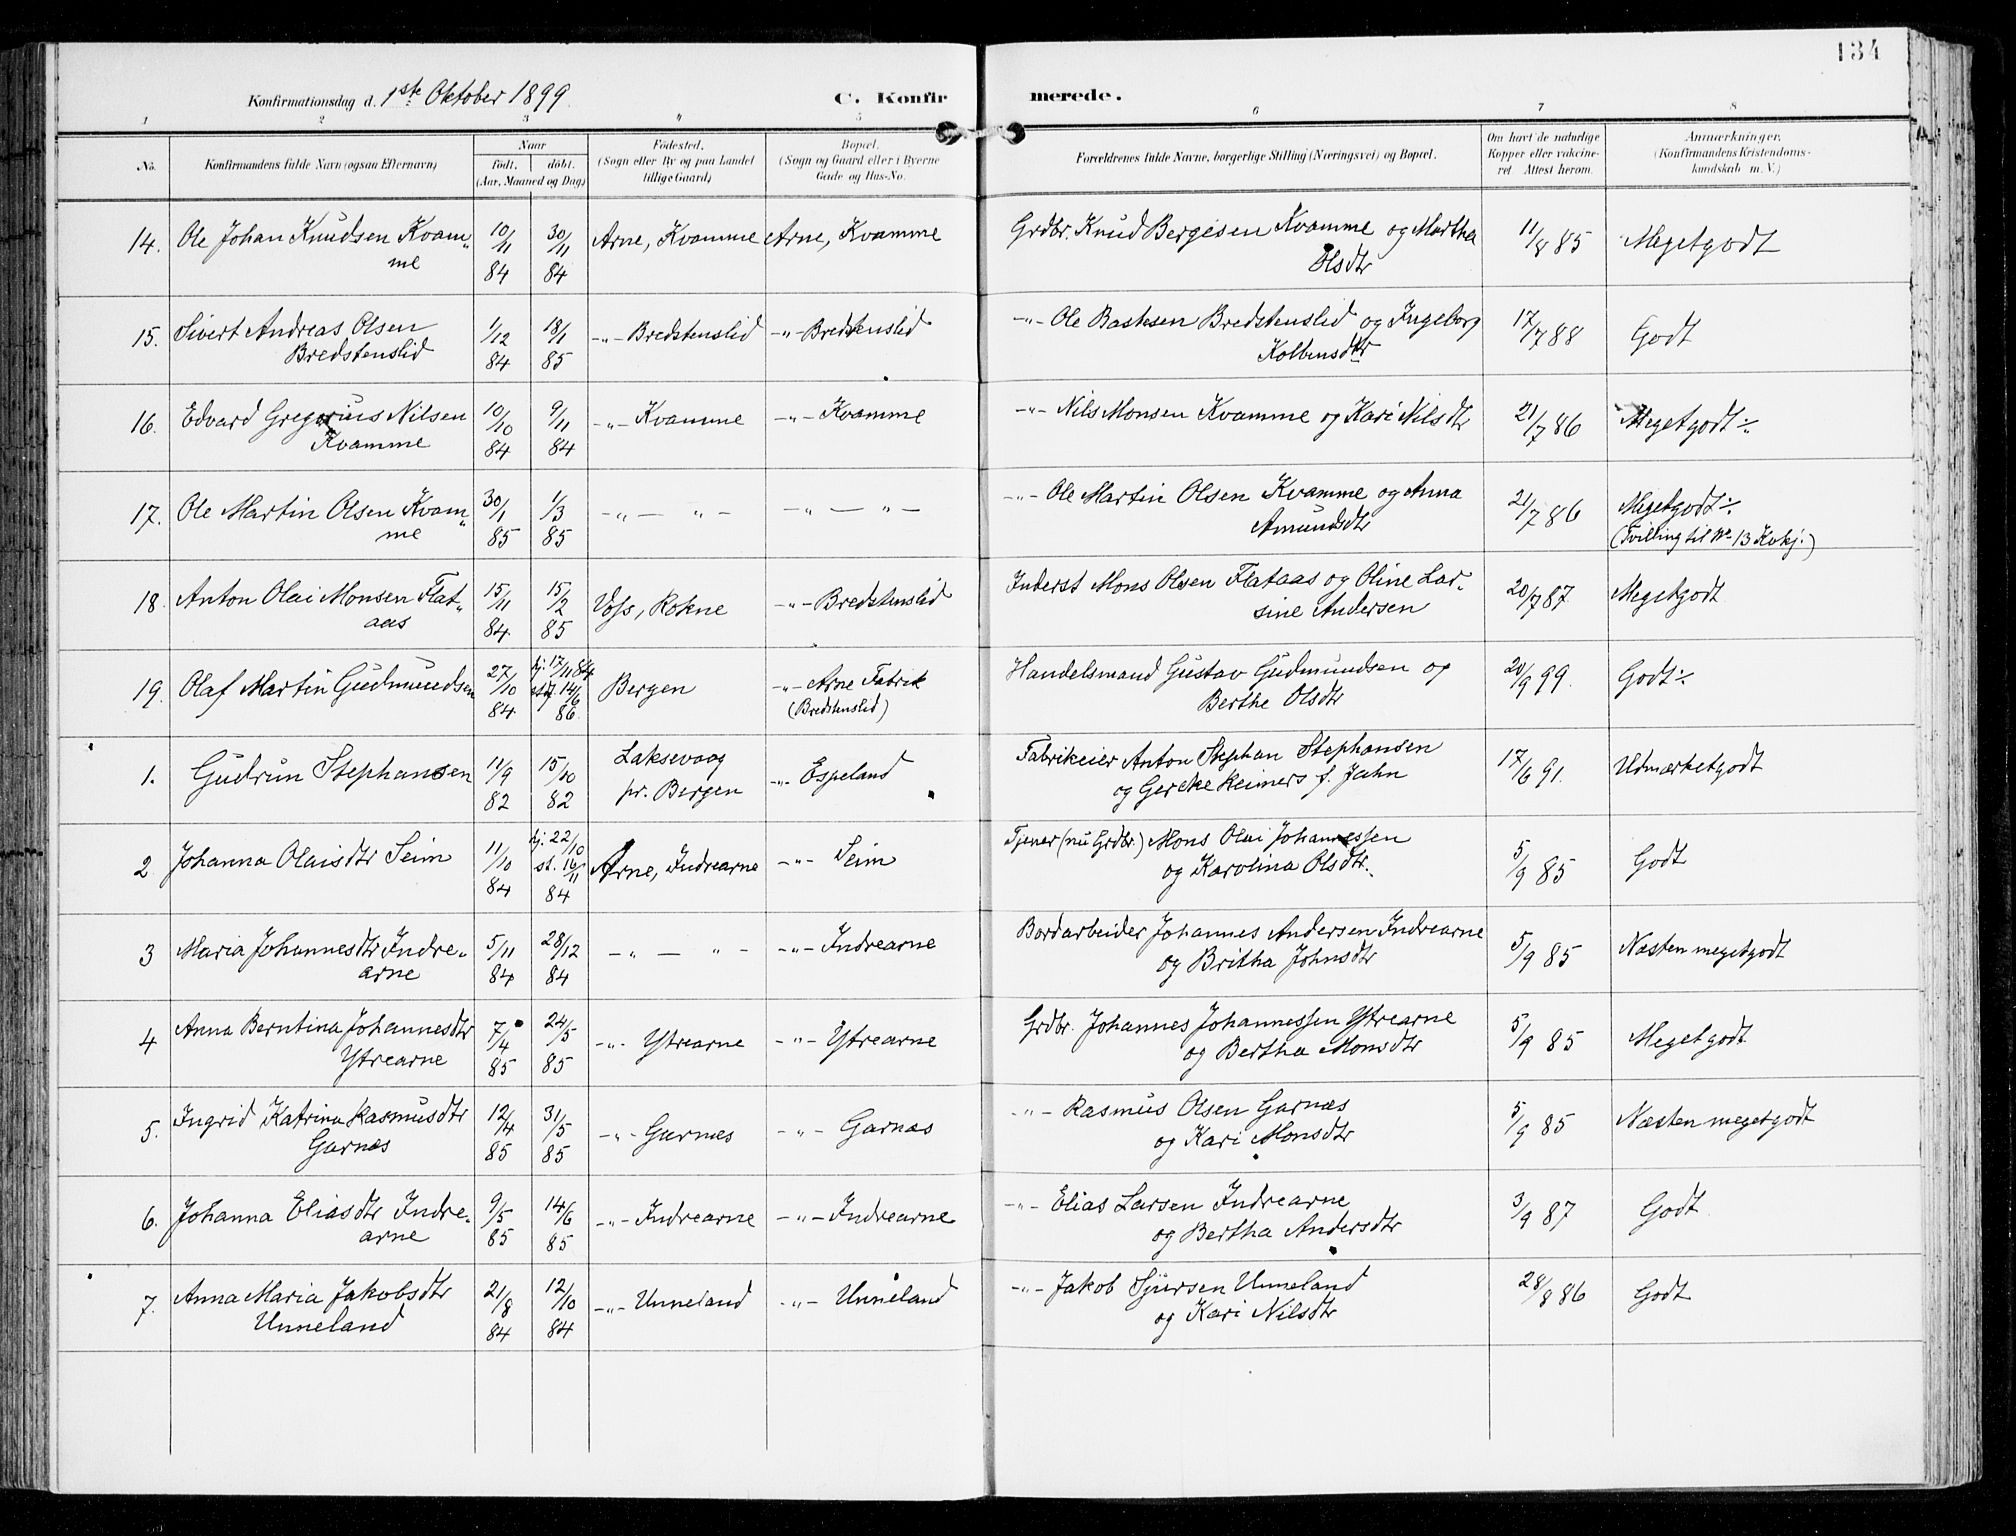 134
Konfirmationsdag d. 1ste Oktober 1899. C. Konfirmerede.
1 2 3 4 5 6 7 8
No. Konfirmandens fulde Navn (ogsaa Efternavn) Naar født. døbt. (Aar, Maaned og Dag) Fødested. (Sogn eller By og paa Landet tillige Gaard) Bopæl. (Sogn og Gaard eller i Byerne Gade og Hus-No. Forældrenes fulde Navne, borgerlige Stilling (Næringsvei) og Bopæl. Om havt de naturlige Kopper eller vakcineret. Attest herom. Anmærkninger. (Konfirmandens Kristendomskundskab m. V.)
14. Ole Johan Knudsen Kvam„me 10/11 84 30/11 84 Arne, Kvamme Arne, Kvamme Grdbr. Knud Bergesen Kvamme og Martha Olsdtr 11/8 85 Megetgodt
15. Sivert Andreas Olsen Bredstenslid 1/12 84 18/1 85 -„- Bredstenslid -„- Bredstenslid -„- Ole Baste­sen Bredstenslid og Ingeborg Kolbensdtr 17/7 88 Godt
16. Edvard Gregorius Nilsen Kvamme 10/10 84 9/11 84 -„- Kvamme -„- Kvamme -„- Nils Monsen Kvamme og Kari Nilsdtr 21/7 86 Megetgodt ÷
17. Ole Martin Olsen Kvam„me 30/1 85 1/3 85 -„- „- -„- „- -„- Ole Martin Olsen Kvamme og Anna Amundsdtr 21/7 86 Megetgodt ÷ (Tvilling til No 13 Kvkj.)
18. Anton Olai Monsen Flat„aas 15/11 84. 15/2 85 Voss, Rokne -„- Bredstenslid Inderst Mons Olsen Flataas og Oline Larsine Andersen 20/7 87 Megetgodt
19. Olaf Martin Gudmundsen 27/10 84. hj. 17/11 84 st. 14/6 86. Bergen -„- Arne Fabrik (Bredstenslid) Handelsmand Gustav Gudmundsen og Berthe Olsdtr 20/9 99. Godt ÷
1. Gudrun Stephansen 11/9 82 15/10 82 Laksevaag pr. Bergen -„- Espeland Fabrikeier Anton Stephan Stephansen og Gercke Reimers f. Jahn 17/6 91. Udmærketgodt
2. Johanna Olaisdtr Seim 11/10 84 hj. 22/10 st. 16/11 84 Arne, Indrearne -„- Seim Tjener (nu Grdbr.) Mons Olai Johannessen og Karolina Olsdtr. 5/9 85 Godt
3 Maria Johannesdtr Indre„arne 5/11 84 28/12 84 -„- „- -„- Indrearne Bordarbeider Johannes Andersen Indrearne og Britha Johnsdtr 5/9 85 Næsten megetgodt
4 Anna Berntina Johannesdtr Ytrearne 7/4 85 24/5 85 -„- Ytrearne -„- Ytrearne Grdbr. Johannes Johannessen Ytrearne og Bertha Monsdtr 5/9 85 Megetgodt
5. Ingrid Katrina Rasmusdtr Garnæs 12/4 85 31/5 85 -„- Garnæs -„- Garnæs -„- Rasmus Olsen Garnæs og Kari Monsdtr 5/9 85 Næsten megetgodt
6. Johanna Eliasdtr Indre„arne 9/5 85 14/6 85 -„- Indrearne -„- Indrearne -„- Elias Larsen Indrearne og Bertha Andersdtr 3/9 87 Godt
7. Anna Maria Jakobsdtr Unneland 21/8 84 12/10 84 -„- Unneland -„- Unneland -„- Jakob Sjursen Unneland og Kari Nilsdtr 28/8 86 Godt